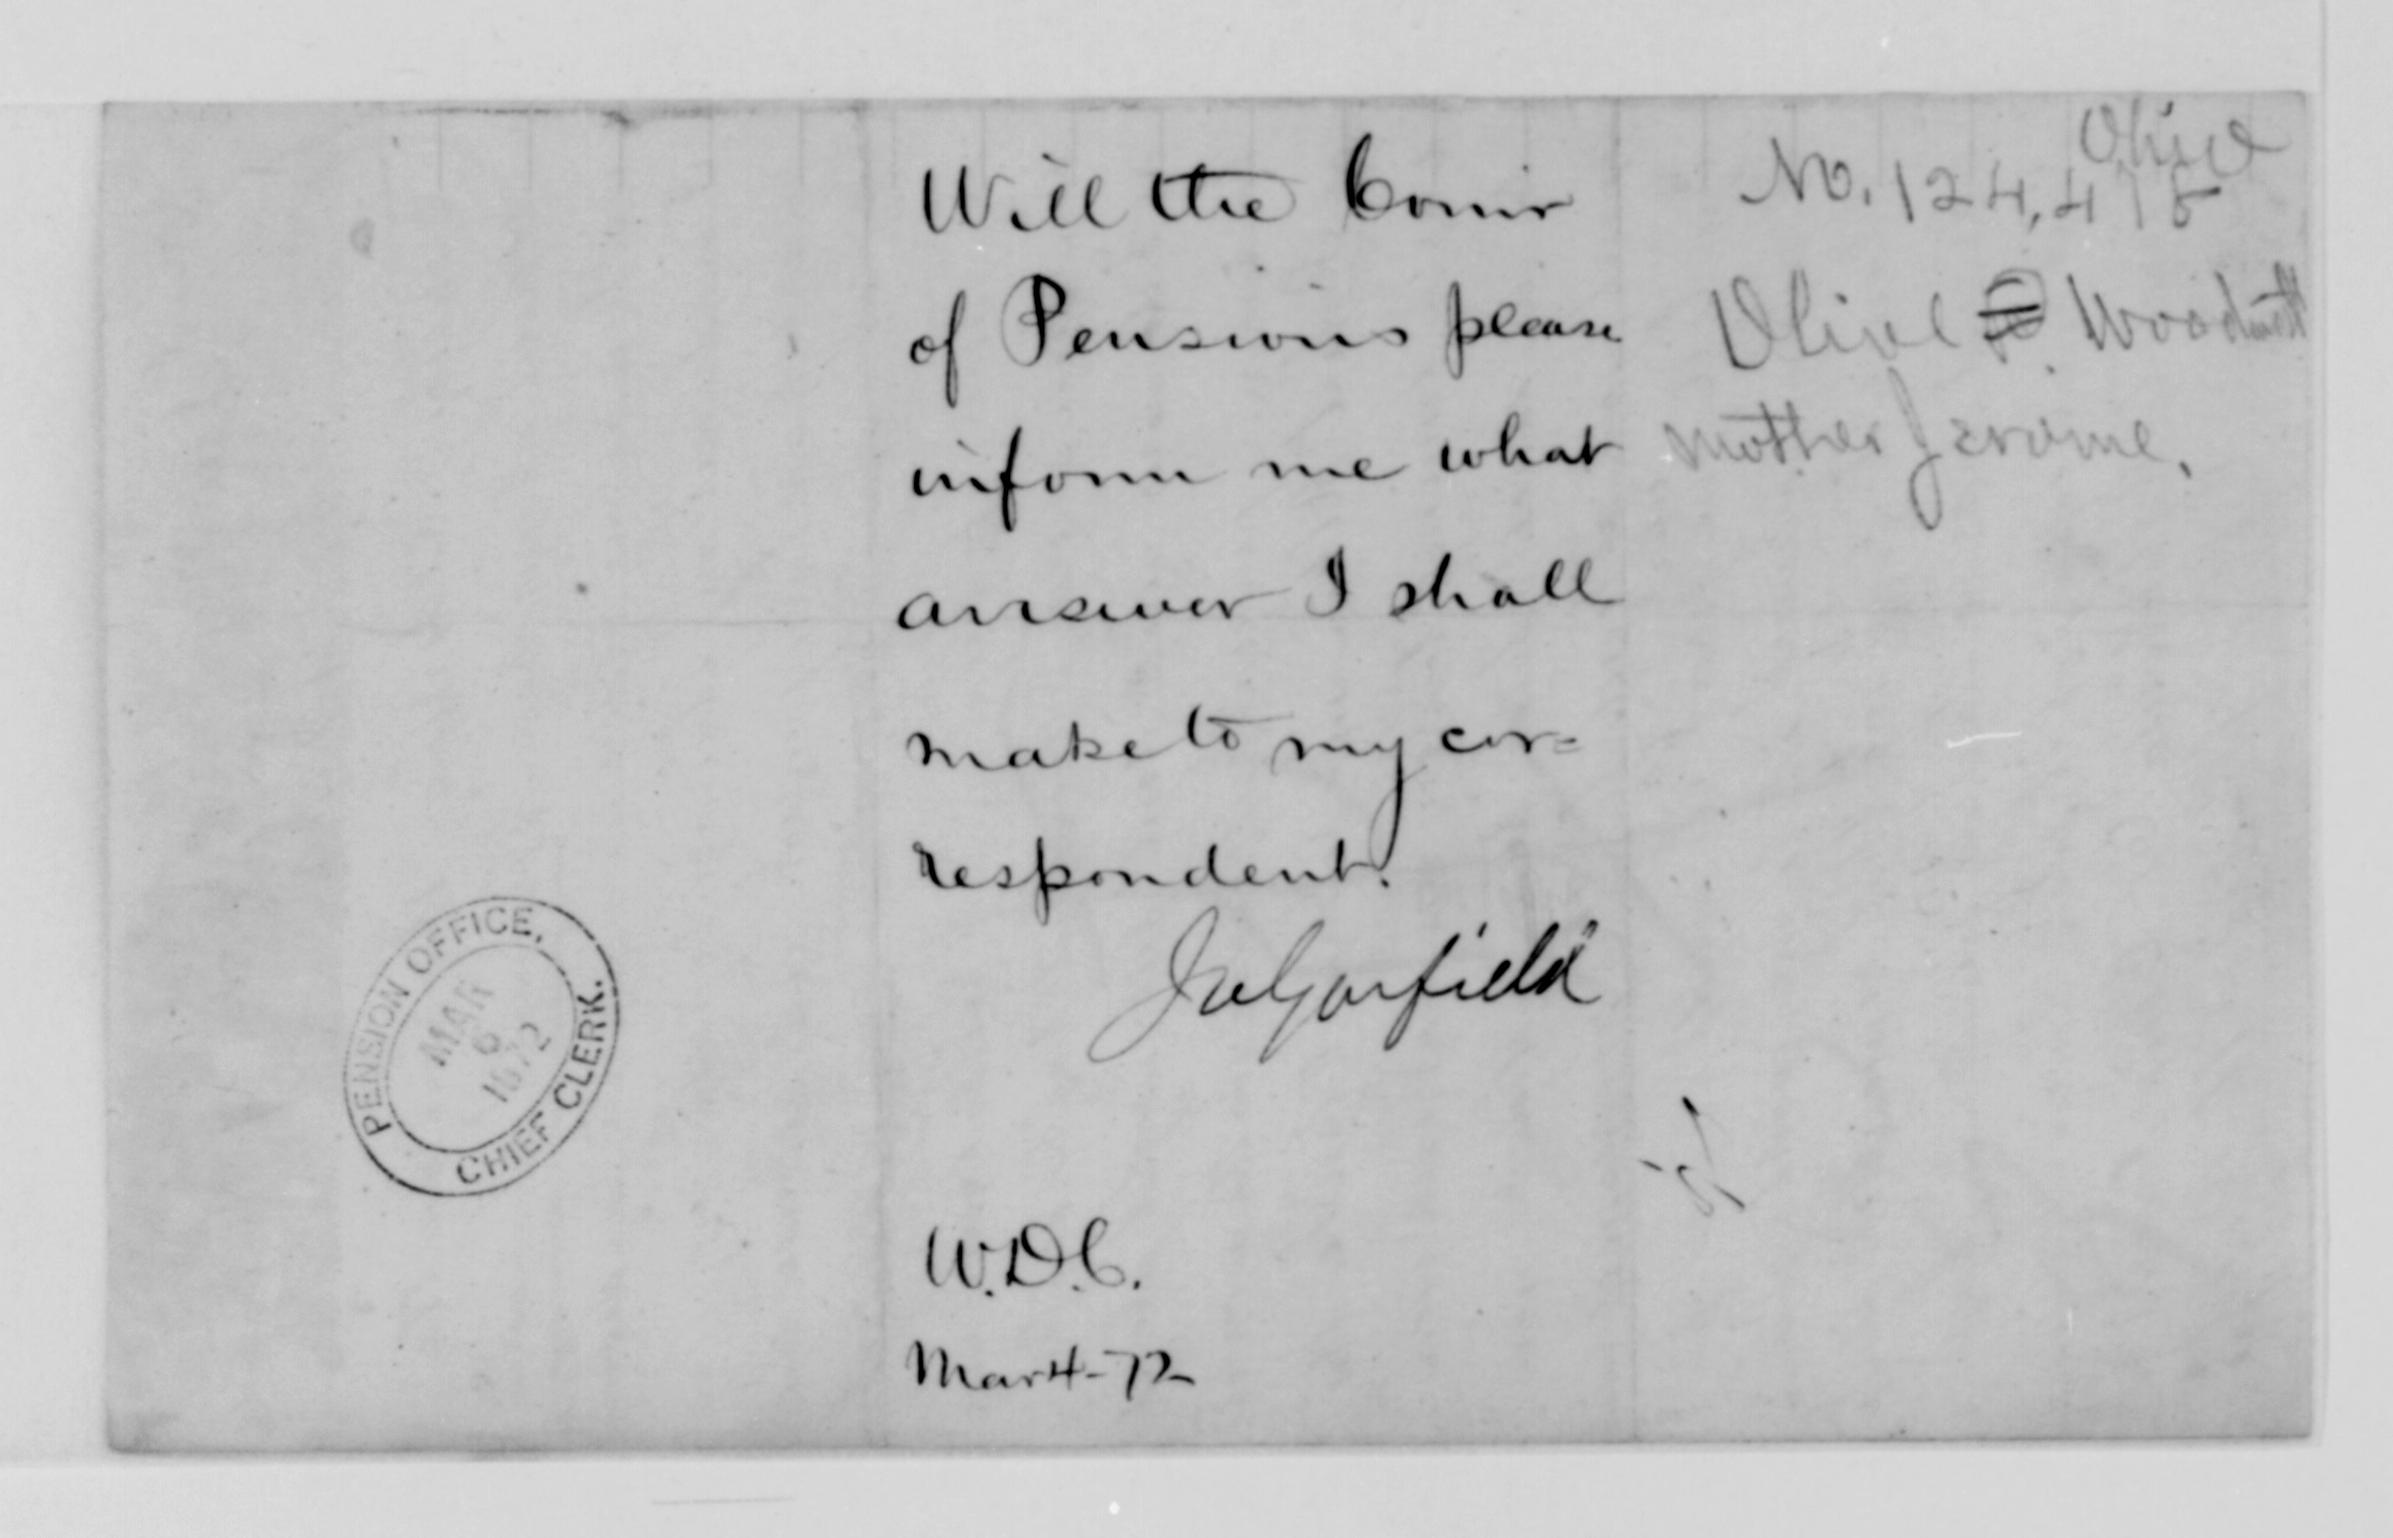 Will the Comr
of Pensions please
inform me what
answer I shall
make to my cor=
respondent.
JAGarfield
W.D.C.
Mar 4-72
Olive
No. 124,418
Olive
mother Jerome.
PENSION OFFICE,
MAR
6
1872
CHIEF CLERK.